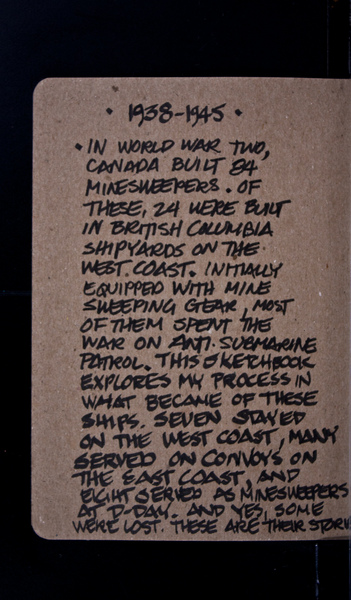 · 1938-1945 ·
· IN WORLD WAR TWO,
CANADA BUILT 84
MINESWEEPERS. OF
THESE, 24 WERE BUILT
IN BRITISH COLUMBIA
SHIPYARDS ON THE
WEST. COAST. INITIALLY
EQUIPPED WITH MINE
SWEEPING GEAR, MOST
OF THEM SPENT THE
WAR ON ANTI-SUBMARINE
PATROL. THIS SKETCHBOOK
EXPLORES MY PROCESS IN
WHAT BECAME OF THESE
SHIPS. SEVEN STAYED
ON THE WEST COAST, MANY
SERVED ON CONVOYS ON
THE EAST COAST, AND
EIGHT SERVED AS MINESWEEPERS
AT D-DAY. AND YES, SOME
WERE LOST. THESE ARE THEIR